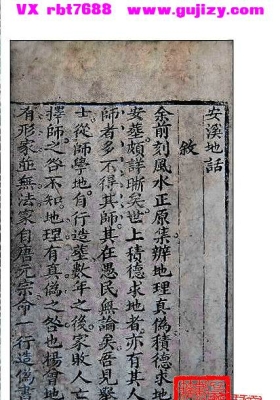 VX rbt7688 www.gujizy.com
安溪地話
敘
余前刻風水正原集辨地理真偽積德求地
安塟頗詳晰矣世上積德求地者亦有其人
師者多不得其師其在愚民無論矣吾見
士從師學地自行造塟數年之後家敗人亡
擇師之咎不知地理有真偽之咎也楊曾地
有形家並無法家自唐元宗命一行造偽書